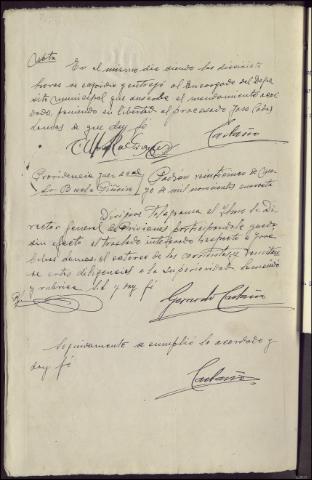 Nota
En el mismo dia siendo las diecisiete
horas se expidio y entregó al Encargado del Depo
sito Municipal que suscribe el mandamiento acor
dado, poniendo en libertad al procesado Jose
de que doy fé
Castaño
Providencia Juez
Padron veintiuno de
de mil novecientos cuarenta
Dirijase Telegrama al Ilmo Sr Di
rector General de Prisiones participandole queda
sin efecto el traslado interesado respecto a Jose
remitan
se estas diligencias a la Superioridad
y rubrica Sd y doy fé
Gerardo Castaño
Seguidamente se cumplio lo acordado y
doy fé
Castaño